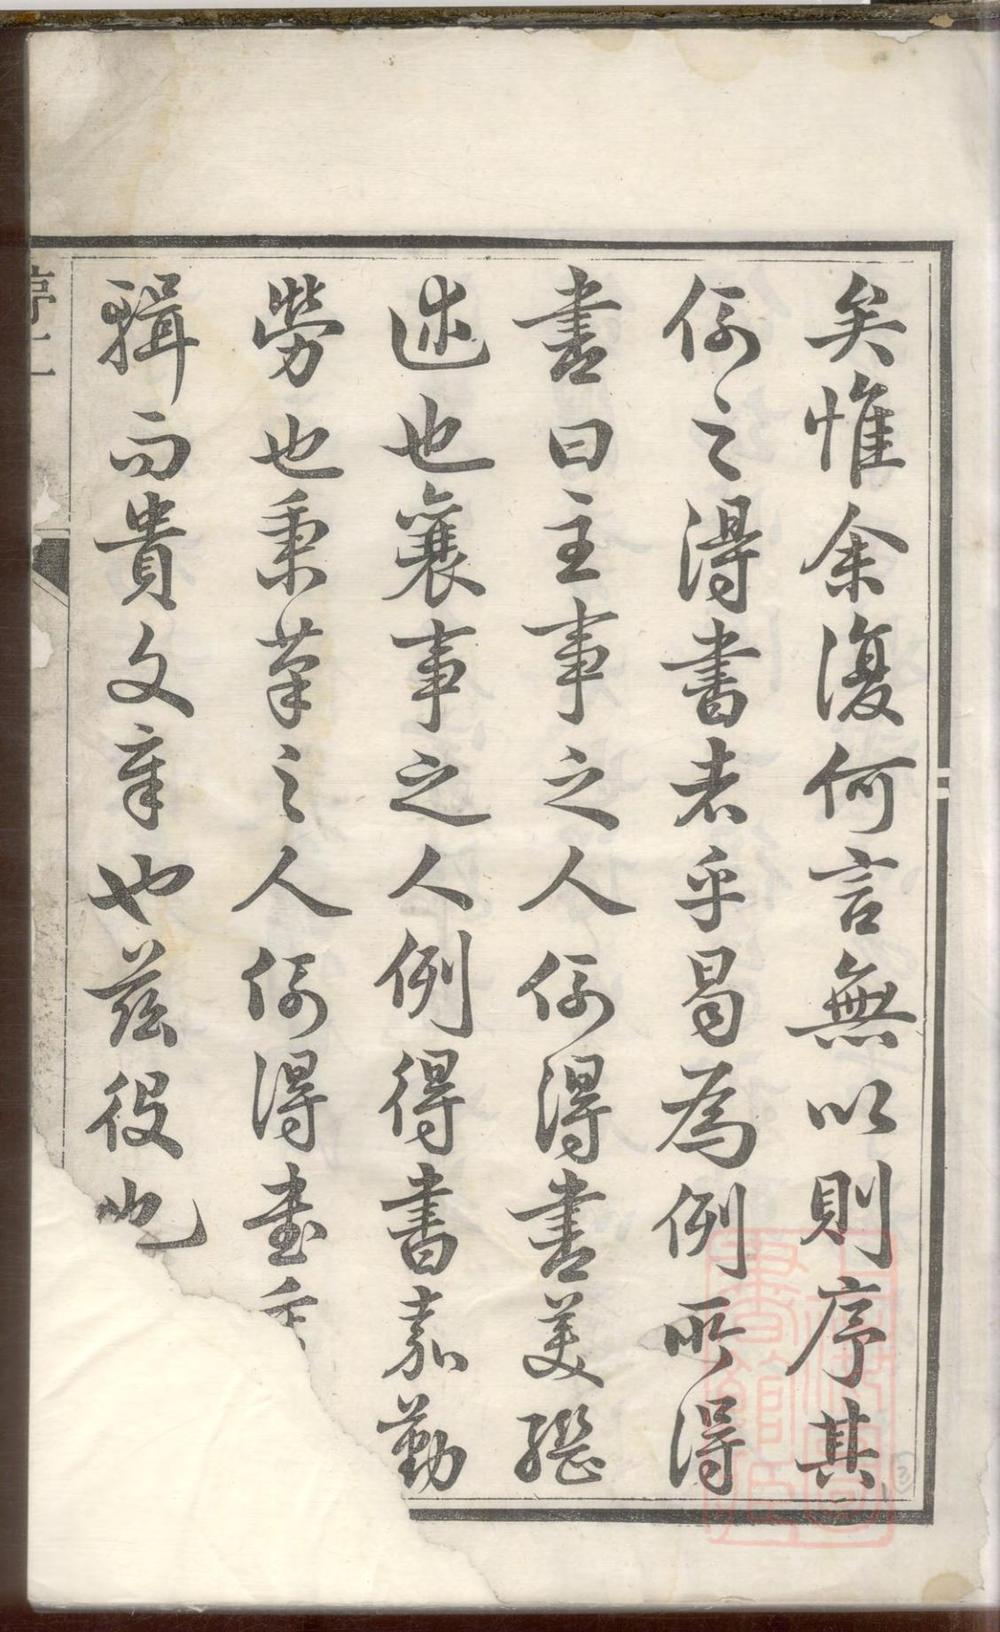 矣惟余復何言無以則序其
例之得書者乎曷為例所得
書曰主事之人例得書美繼
述也襄事之人例得書嘉勤
勞也秉筆之人例得書重
輯而貴文章也茲役也
序